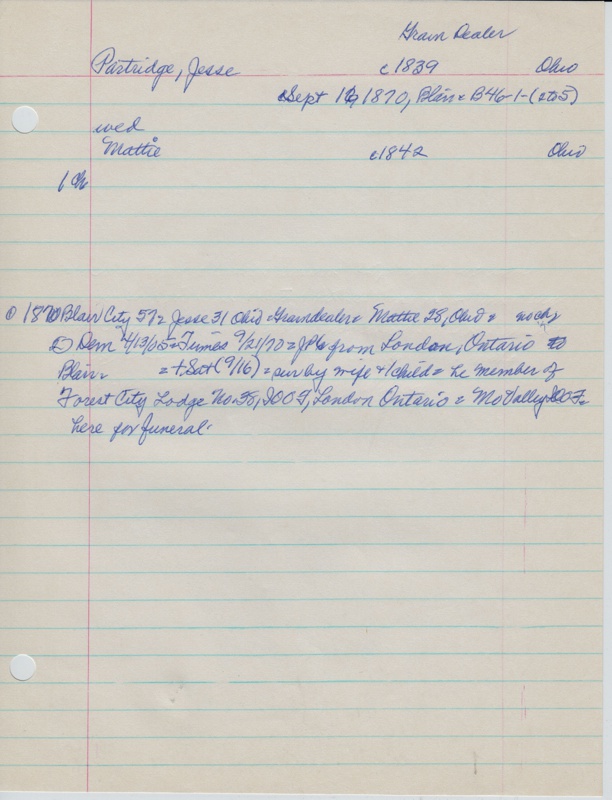 Grain Dealer
Partridge, Jesse c1839 Ohio
Sept 1870, Blair = B46-1-(2to5)
wed
Mattie c1842 Ohio
1 ch
1870 Blair City 57 = Jesse 31 Ohio = Graindealer = Mattie 28, Ohio = no ch
Dem 4/13/05 = Times 9/21/70 = JP from London, Ontario to
Blair = = + Sat (9/16) = sur by wife + 1 child = he member of
Forest City Lodge No. 38, IOOF, London Ontario = Mo Valley IOOF
here for funeral.